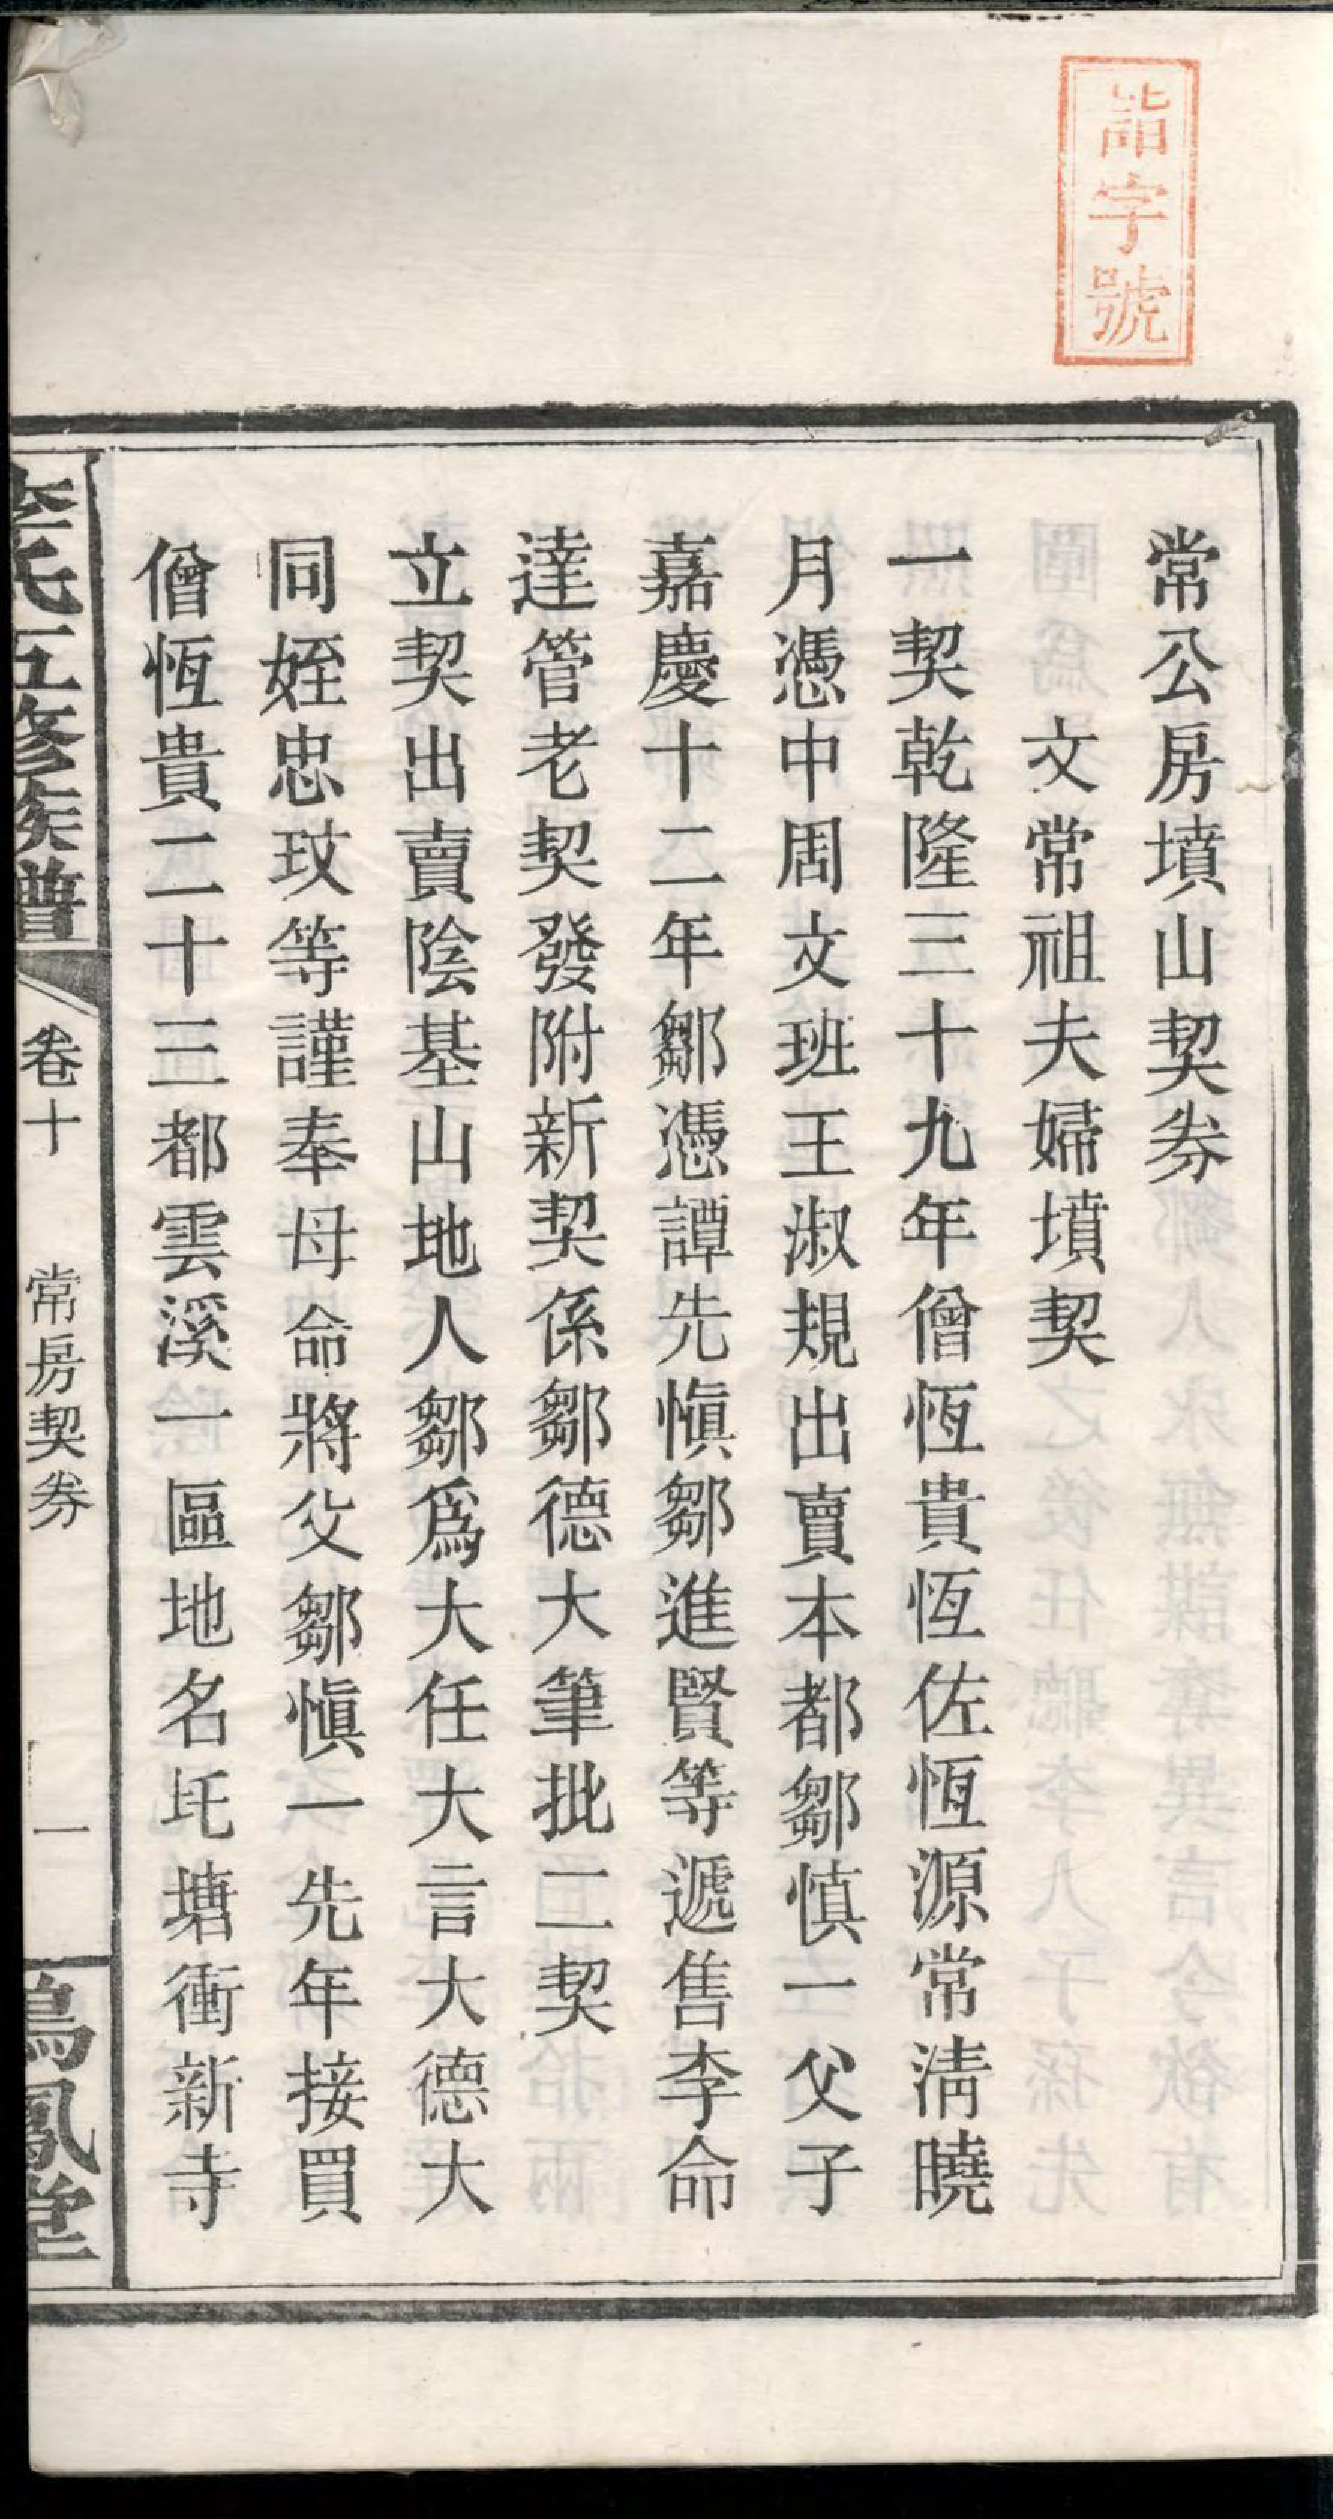 詣字號
常公房墳山契券
文常祖夫婦墳契
一契乾隆三十九年僧恆貴恆佐恆源常淸曉
月憑中周文班王淑規出賣本都鄒慎一父子
嘉慶十二年鄒憑譚先愼鄒進賢等遞售李命
達管老契發附新契係鄒德大筆批二契
立契出賣陰基山地人鄒爲大任大言大德大
同姪忠玟等謹奉母命將父鄒愼一先年接買
僧恆貴二十三都雲溪一區地名圫塘衝新寺
李氏五修族譜
卷十
常房契券
一
鳳堂